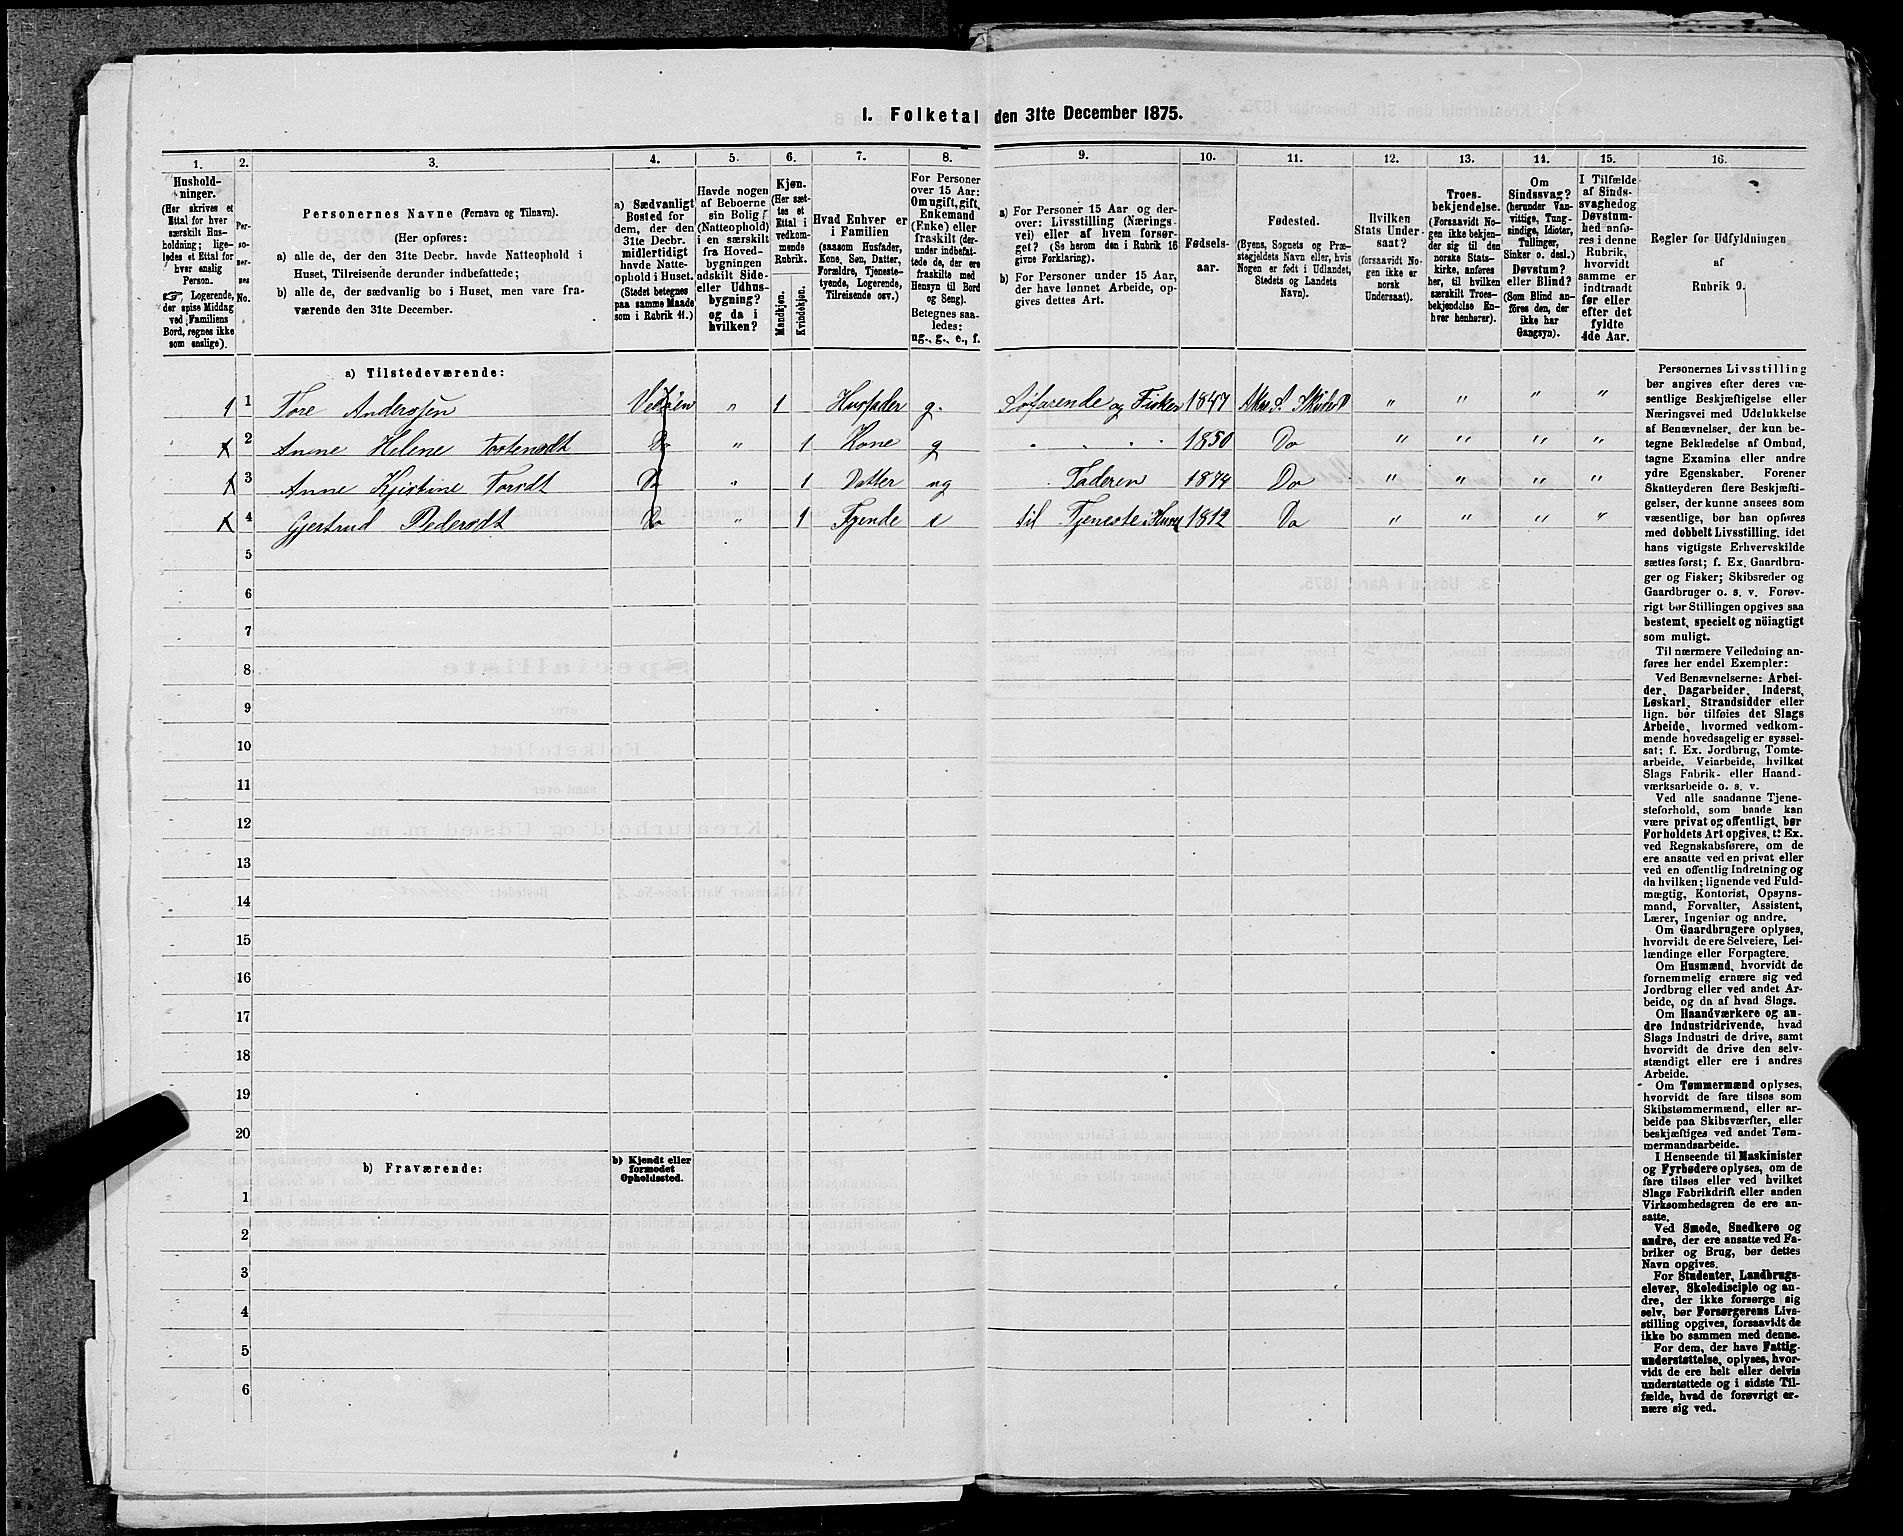 1. Folketal den 31te December 1875.
1.
2.
3.
4.
5.
6.
7.
8.
9.
10.
11.
12.
13.
14.
15.
16.
Hushold-
ninger.
(Her skrives et
Ettal for hver
særskilt Hus-
holdning; lige-
ledes et Ettal for
hver enslig
Person.
☞ Logerende,
der spise Middag
ved Familiens
Bord, regnes ikke
som enslige).
Per-
so-
ner-
nes
No.
Personernes Navne (Fornavn og Tilnavn).
(Her opføres:
a) alle de, der den 31te Decbr. havde Natteophold i
Huset, Tilreisende derunder indbefattede;
b) alle de, der sædvanlig bo i Huset, men vare fra-
værende den 31te December.
a) Sædvanligt
Bosted for
dem, der den
31te Decbr.
midlertidigt
havde Natte-
ophold i Huset.
(Stedet betegnes
paa samme Maade
som i Rubrik 11.)
Havde nogen
af Beboerne
sin Bolig
(Natteophold)
i en særskilt
fra Hoved-
bygningen
adskilt Side-
eller Udhus-
bygning?
og da i
hvilken?
Kjøn.
(Her sæt-
tes et
Ettal i
vedkom-
mende
Rubrik.
Mandkjøn.
Kvindekjøn.
Hvad Enhver er
i Familien
(saasom Husfader,
Kone, Søn, Datter,
Forældre, Tjeneste-
tyende, Logerende,
Tilreisende osv.)
For Personer
over 15 Aar:
Om ugift, gift,
Enkemand
(Enke) eller
fraskilt (der-
under indbefat-
tede de, der ere
fraskilte med
Hensyn til Bord
og Seng).
Betegnes saa-
ledes:
ug., g., e., f.
a) For Personer 15 Aar og der-
over: Livsstilling (Nærings-
vei) eller af hvem forsør-
get? (Se herom den i Rubrik 16
givne Forklaring).
b) For Personer under 15 Aar,
der have lønnet Arbeide, op-
gives dettes Art.
Fødsels-
aar.
Fødested.
(Byens, Sognets og Præ-
stegjeldets Navn eller, hvis
Nogen er født i Udlandet,
Stedets og Landets
Navn).
Hvilken
Stats Under-
saat?
(forsaavidt No-
gen ikke er
norsk
Undersaat).
Troes-
bekjendelse.
(Forsaavidt No-
gen ikke bekjen-
der sig til den
norske Stats-
kirke, anføres
her, til hvilken
særskilt Troes-
bekjendelse En-
hver henhører).
Om
Sindssvag?
(herunder Van-
vittige, Tung-
sindige, Idioter,
Tullinger,
Sinker o. desl.)
Døvstum?
eller Blind?
(Som Blind an-
føres den, der
ikke har
Gangsyn).
I Tilfælde
af Sinds-
svaghed og
Døvstum-
hed anfø-
res i denne
Rubrik,
hvorvidt
samme er
indtraadt
før eller
efter det
fyldte
4de Aar.
Regler for Udfyldningen
af
Rubrik 9.
a) Tilstedeværende:
1 1 Tore Anderssen Vedøen " 1 Husfader g. Søfarende og Fisker 1847 " " " "
2 Anne Helene Do " 1 Kone g " " " 1850 Do " " " "
1 3 Anne Kjistine Torsdt Do " 1 Datter ug Faderen 1874 Do " " " "
4 Gjertrud Pedersdt Do " 1 Tyende e til Tjeneste i Huset 1812 Do " " " "
5
6
7
8
9
10
11
12
13
14
15
16
17
18
19
20
b) Fraværende:
b) Kjendt eller
formodet
Opholdssted.
1
2
3
4
5
6
Personernes Livsstilling
bør angives efter deres væ-
sentlige Beskjæftigelse eller
Næringsvei med Udelukkelse
af Benævnelser, der kun be-
tegne Beklædelse af Ombud,
tagne Examina eller andre
ydre Egenskaber. Forener
Skatteyderen flere Beskjæfti-
gelser, der kunne ansees som
væsentlige, bør han opføres
med dobbelt Livsstilling, idet
hans vigtigste Erhvervskilde
sættes først; f. Ex. Gaardbru-
ger og Fisker; Skibsreder og
Gaardbruger o. s. v. Forøv-
rigt bør Stillingen opgives saa
bestemt, specielt og nöiagtigt
som muligt.
Til nærmere Veiledning an-
føres her endel Exempler:
Ved Benævnelserne: Arbei-
der, Dagarbeider, Inderst,
Løskarl, Strandsidder eller
lign. bør tilføies det Slags
Arbeide, hvormed vedkom-
mende hovedsagelig er syssel-
sat; f. Ex. Jordbrug, Tomte-
arbeide, Veiarbeide, hvilket
Slags Fabrik- eller Haand-
værksarbeide o. s. v.
Ved alle saadanne Tjene-
steforhold, som baade kan
være privat og offentligt, bør
Forholdets Art opgives, t: Ex.
ved Regnskabsførere, om de
ere ansatte ved en privat eller
ved en offentlig Indretning og
da hvilken; lignende ved Fuld-
mægtig, Kontorist, Opsyns-
mand, Forvalter, Assistent,
Lærer, Ingeniør og andre.
Om Gaardbrugere oplyses,
hvorvidt de ere Selveiere, Lei-
lændinge eller Forpagtere.
Om Husmænd, hvorvidt de
fornemmelig ernære sig ved
Jordbrug eller ved andet Ar-
beide, og da af hvad Slags.
Om Haandværkere og an-
dre Industridrivende, hvad
Slags Industri de drive, samt
hvorvidt de drive den selv-
stændigt eller ere i andres
Arbeide.
Om Tømmermænd oplyses,
hvorvidt de fare tilsøs som
Skibstømmermænd, eller ar-
beide paa Skibsværfter, eller
beskjæftiges ved andet Tøm-
mermandsarbeide.
I Henseende til Maskinister
og Fyrbødere oplyses, om de
fare tilsøs eller ved hvilket
Slags Fabrikdrift eller anden
Virksomhedsgren de ere an-
satte.
Ved Smede, Snedkere og
andre, der ere ansatte ved Fa-
briker og Brug, bør dettes
Navn opgives.
For Studenter, Landbrugs-
elever, Skoledisciple og an-
dre, der ikke forsørge sig
selv, bør Forsørgerens Livs-
stilling opgives, forsaavidt de
ikke bo sammen med denne.
For dem, der have Fattig-
understøttelse, oplyses, hvor-
vidt de ere helt eller delvis
understøttede og i sidste Til-
fælde, hvad de forøvrigt er-
nære sig ved.